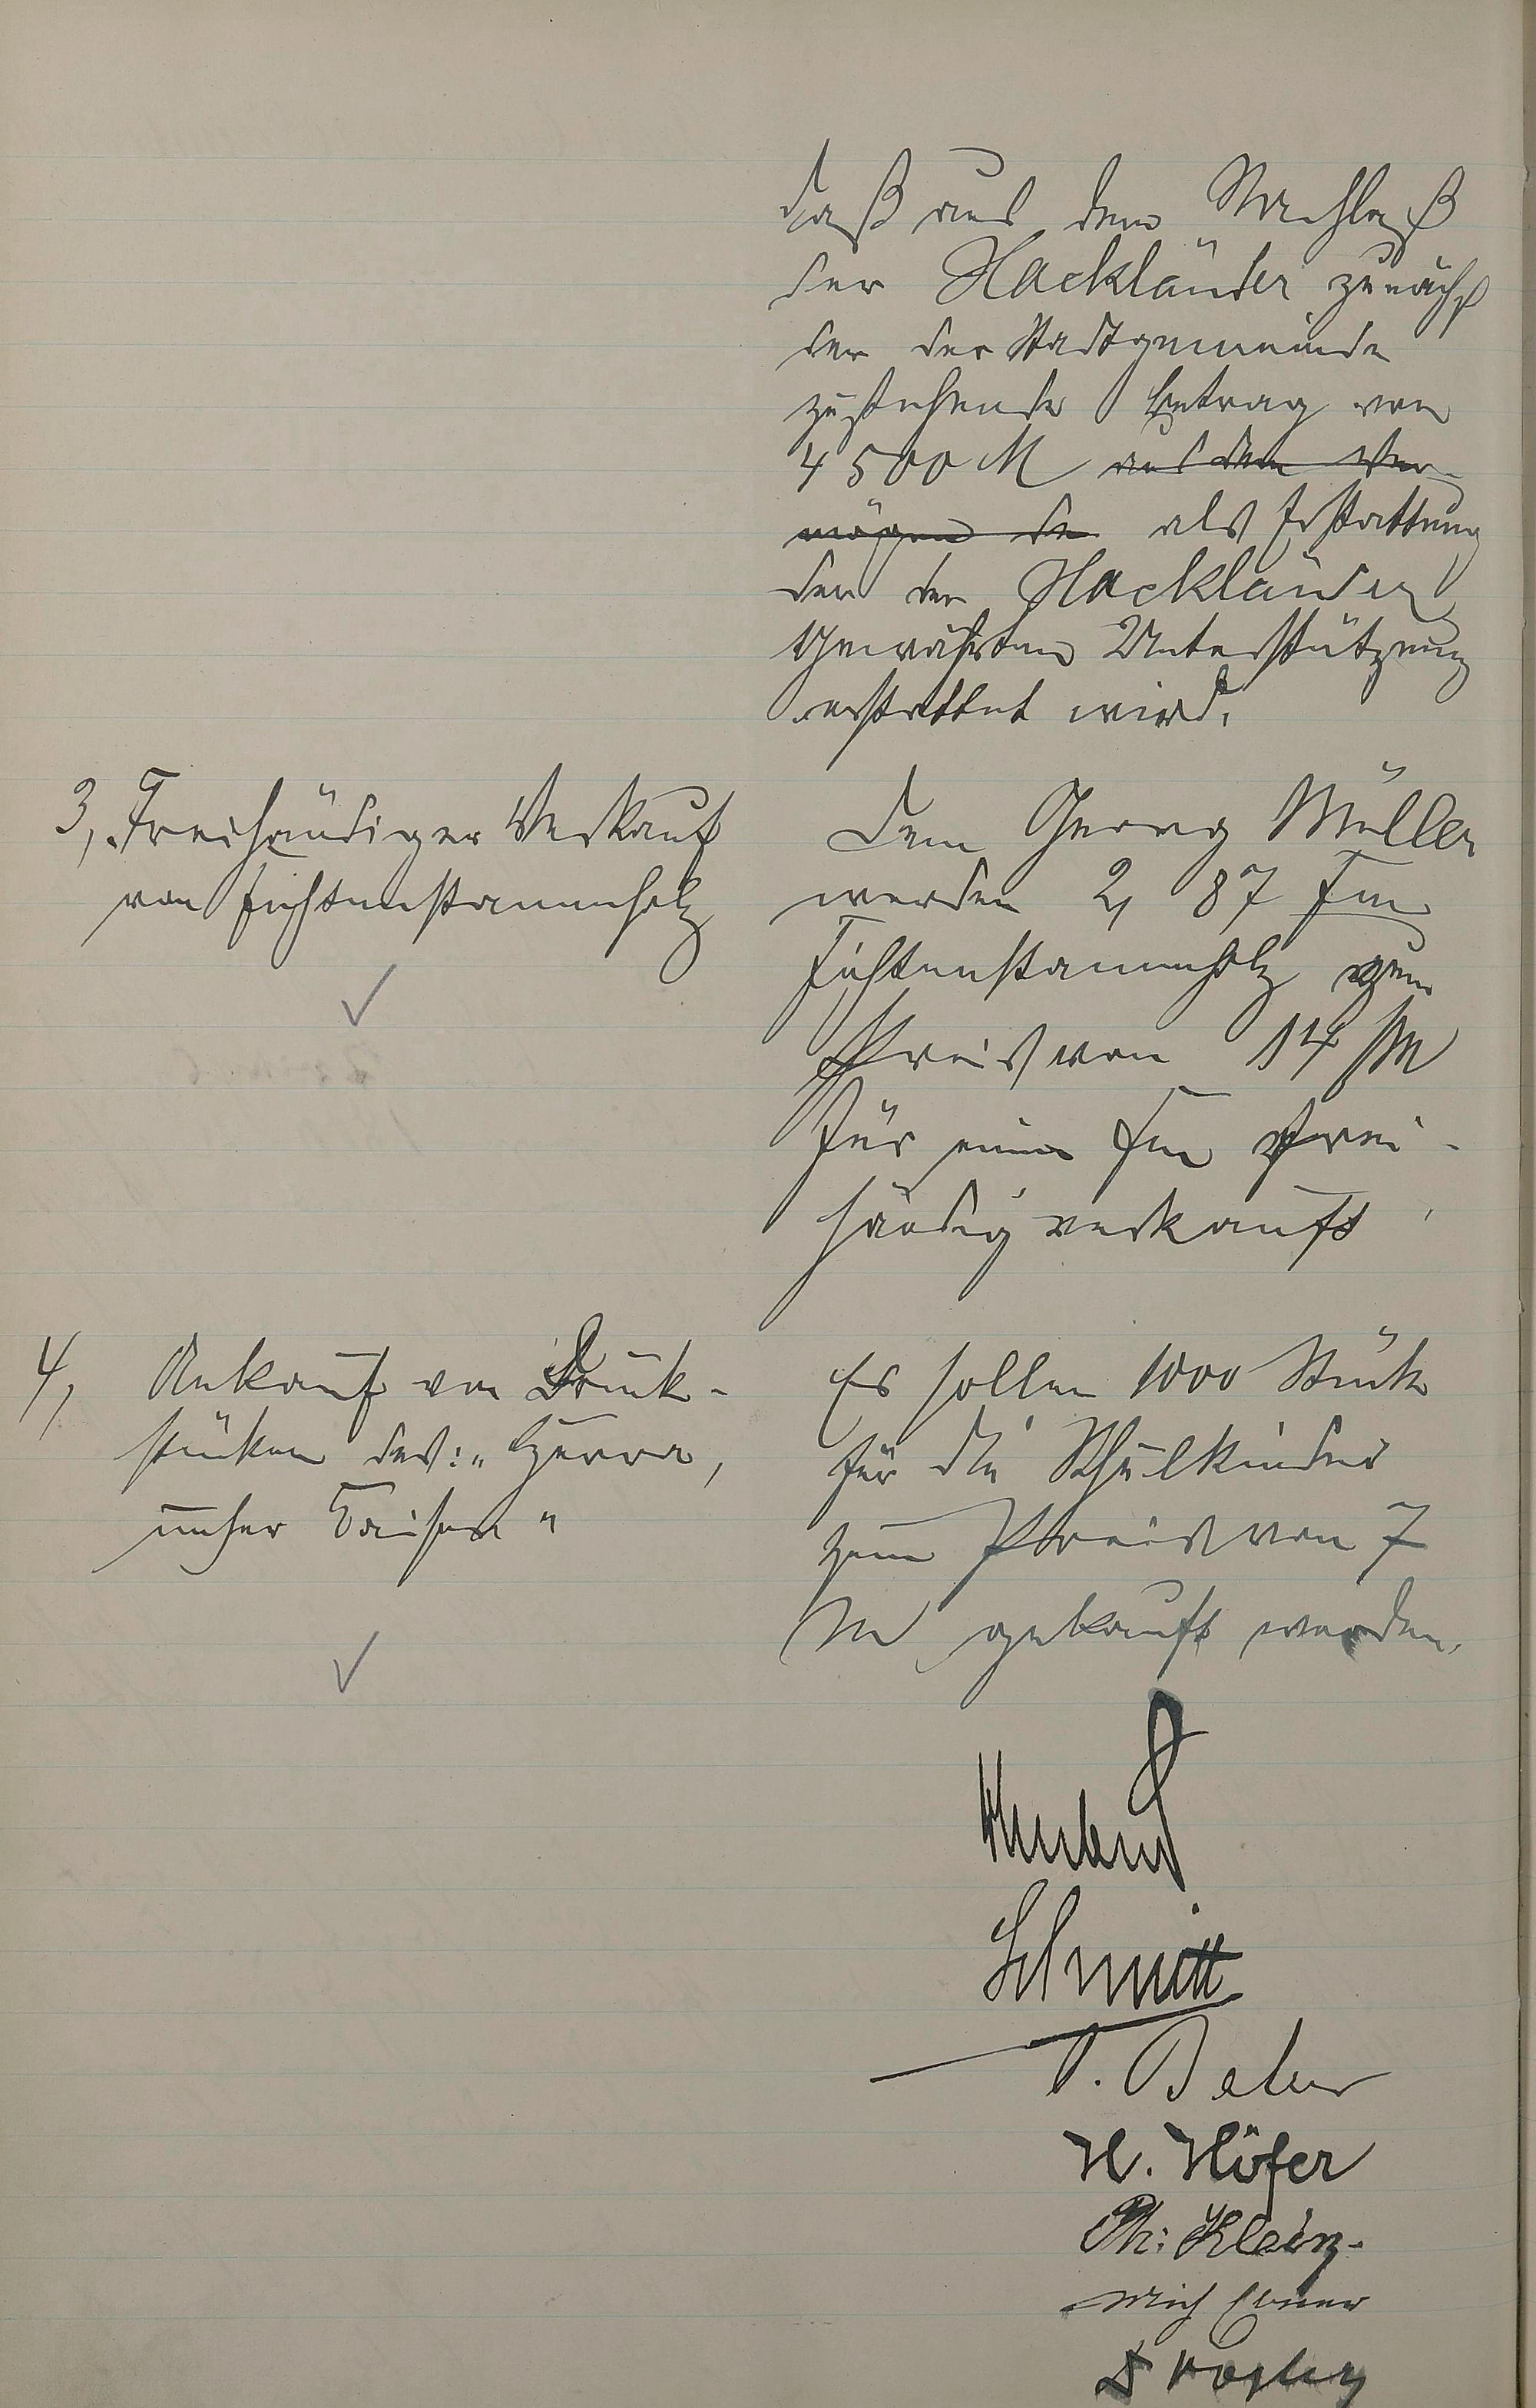 daß aus dem Nachlaß
der Hackländer zunächst
der der Stadtgemeinde
zustehende Betrag von
4500 M aus dem Ver-
mögen de als Erstattung
der der Hackländer
gewährten Unterstützung
erstattet wird.
3, Freihändiger Verkauf
von Fichtenstammholz
Dem Georg Müller
werden 2,87 Fm
Fichtenstammholz zum
Preis von 14 M
für einen Fm frei-
händig verkauft.
4, Ankauf von Druck-
stücken des: "
unser Kaiser"
Es sollen 1000 Stück
für die Schulkinder
zum Preis von 7
M gekauft werden.
Schmitt
H. Höfer
Ph: Klein
Mich